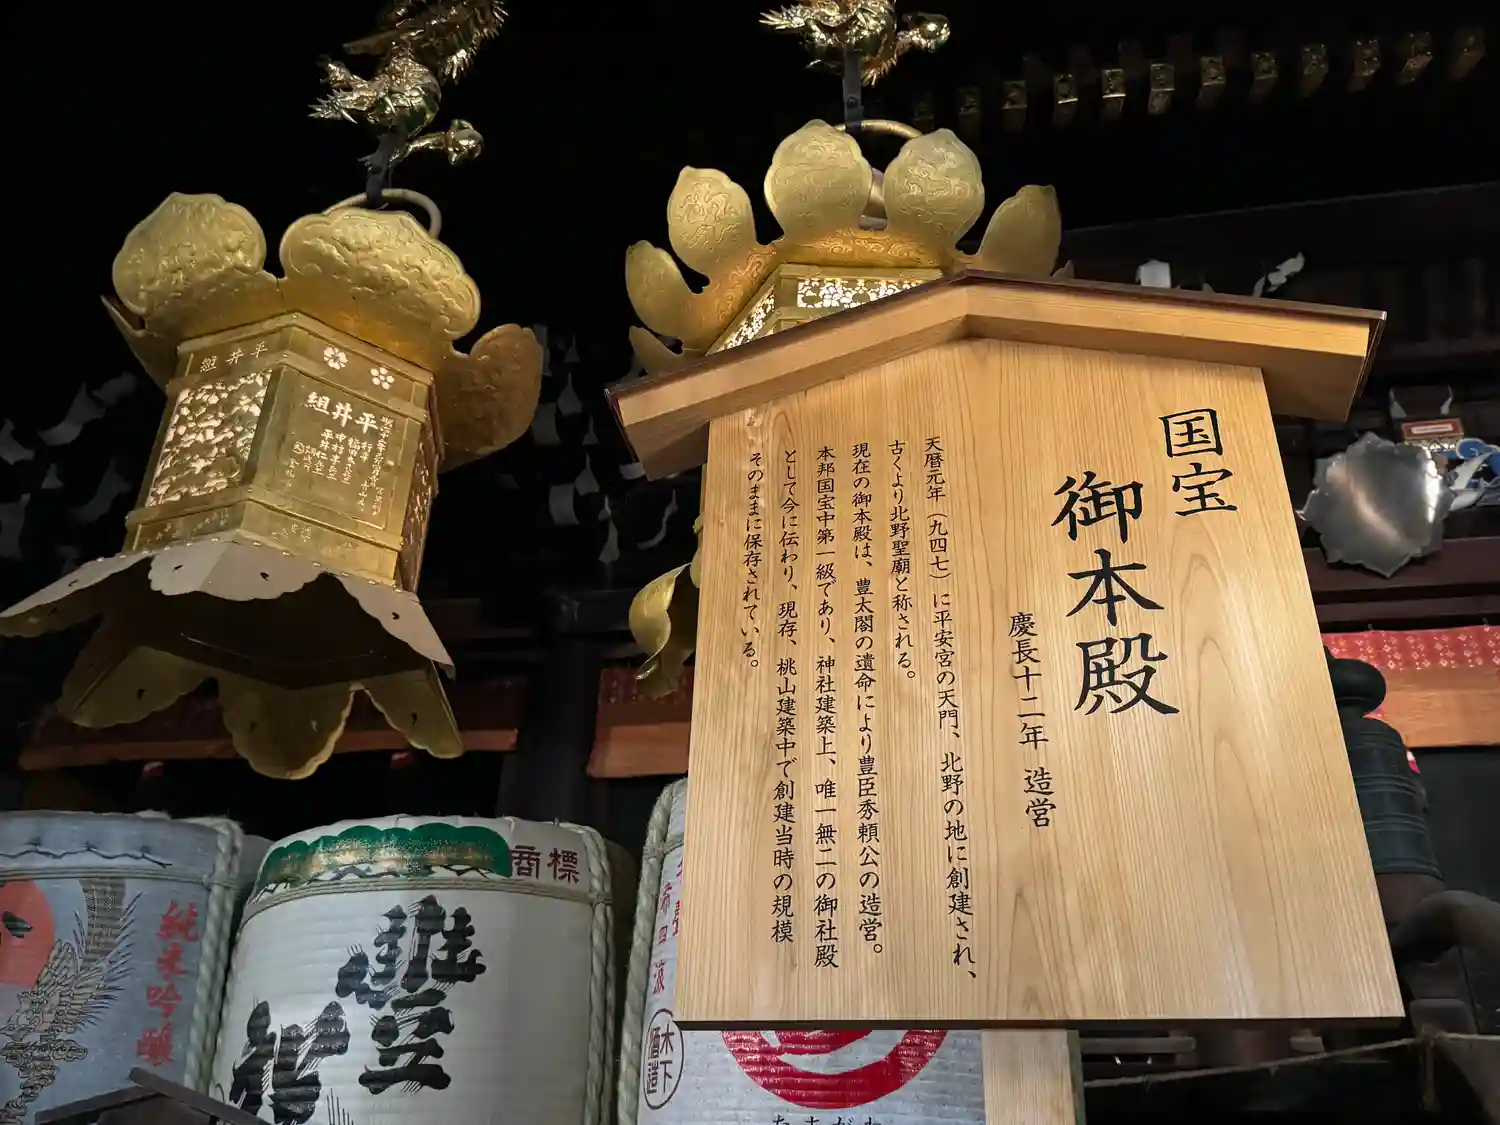 国宝
御本殿
慶長十二年 造営
天暦元年（九四七）に平安宮の天門、北野の地に創建され、
古くより北野聖廟と称される。
現在の御本殿は、豊太閤の遺命により豊臣秀頼公の造営。
本邦国宝中第一級であり、神社建築上、唯一無二の御社殿
として今に伝わり、現存、桃山建築中で創建当時の規模
そのままに保存されている。
組井平
組井平
商標
純米吟醸
木下
酒造